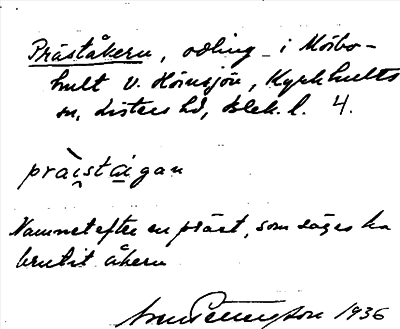 Präståkern, odling i Mörbo-
hult v. Hörnsjön, Kyrkhults
sn, Listers hd, Blek. l. 4.
präistaigan
Namnet efter en präst, som säges ha
brutit åkern
1936